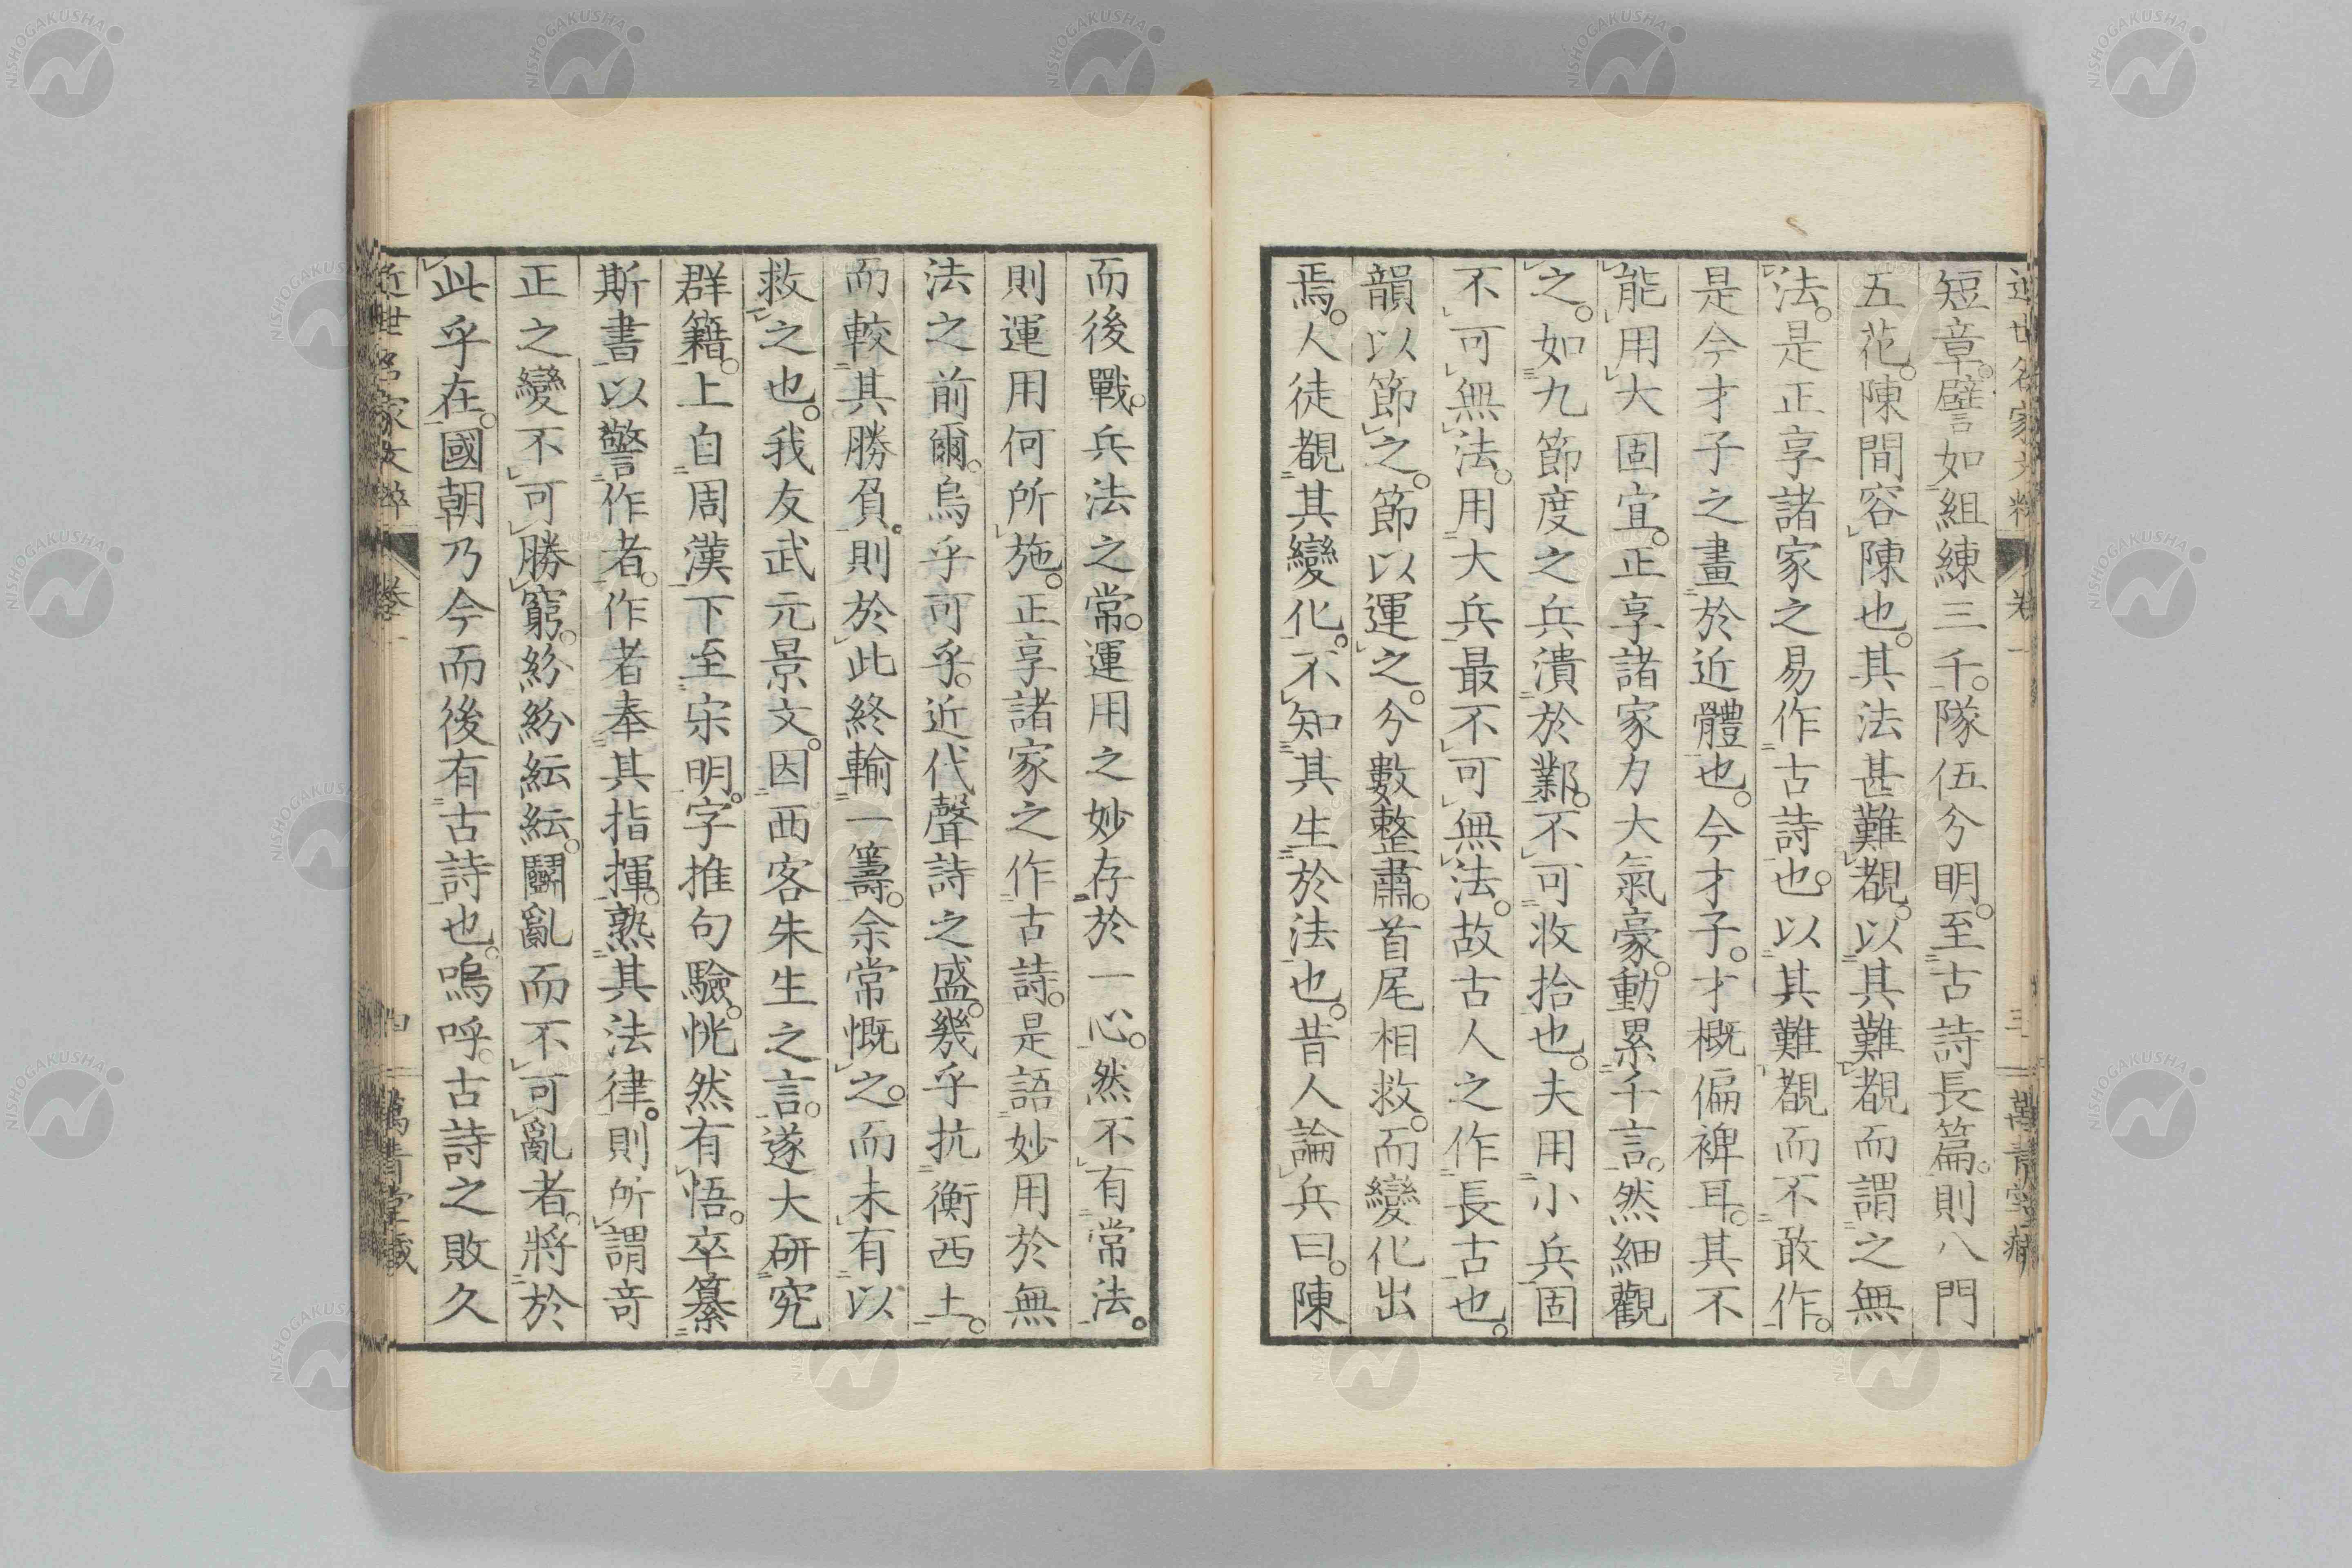 短章。譬如組練三千。隊伍分明。至古詩長篇。則八門
五花。陳間容陳也。其法甚難覩。以其難覩而謂之無
法。是正享諸家之易作古詩也。以其難覩而不敢作。
是今才子之畫於近體也。今才子。才概偏裨耳。其不
能用大固宜。正享諸家力大氣豪。動累千言。然細觀
之。如九節度之兵潰於鄴。不可收拾也。夫用小兵固
不可無法。用大兵最不可無法。故古人之作長古也。
韻以節之。節以運之。分數整肅。首尾相救。而變化出
焉。人徒覩其變化。不知其生於法也。昔人論兵曰。陳
而後戰。兵法之常。運用之妙存於一心。然不有常法。
則運用何所施。正享諸家之作古詩。是語妙用於無
法之前爾。烏乎可乎。近代聲詩之盛。幾乎抗衡西土。
而較其勝負。則於此終輸一籌。余常慨之。而未有以
救之也。我友武元景文。因西客朱生之言。遂大研究
群籍。上自周漢下至宋明。字推句驗。恍然有悟。卒纂
斯書以警作者。作者奉其指揮。熟其法律。則所謂奇
正之變不可勝窮。紛紛紜紜。鬪亂而不可亂者。將於
此乎在。國朝乃今而後有古詩也。嗚呼。古詩之敗久
近世名家文粹 卷一 四 萬青堂藏
NISHOGAKUSHA